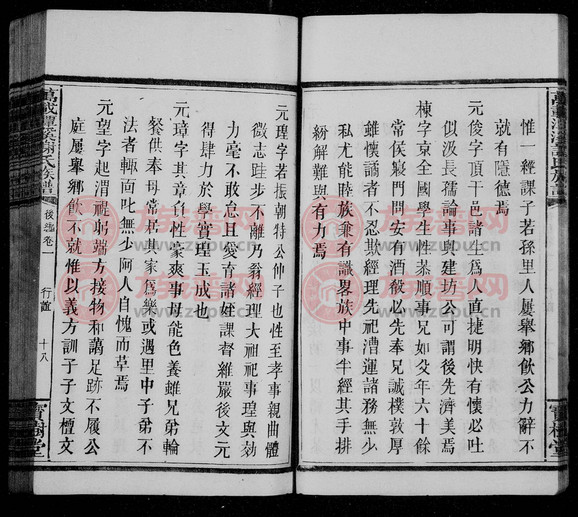 惟一經課子若孫里人屢舉鄉飲公力辭不
就有隱德焉
元俊字頂干邑諸生爲人直捷明快有懷必吐
似汲長孺論事與建坊公可謂後先濟美焉
棟字京全國學生性恭順事兄如父年六十餘
常侯襲門問安有酒殽必先奉兄誠樸敦厚
雖懷譎者不忍欺經理先祀漕運諸務無少
私尤能睦族兼有識畧族中事半經其手排
紛解難與有力焉
元瑆字若振朝特公仲子也性至孝事親曲體
微志跬步不離乃翁經理大祖祀事瑆與効
力毫不敢怠且愛育諸姪課督維嚴後文元
得肆力於學實瑆玉成也
元璋字其章自性豪爽事母能色養雖兄弟輪
餐供奉母常居其家爲樂或遇里中子弟不
法者輒面叱無少阿人自愧而革焉
元望字起渭禔躬端方接物和藹足跡不履公
庭屢舉鄉飲不就惟以義方訓子子文檀文
萬載潭溪謝氏族譜
後編卷一
行誼
十八
寶樹堂
族譜网
www.zupu.cn